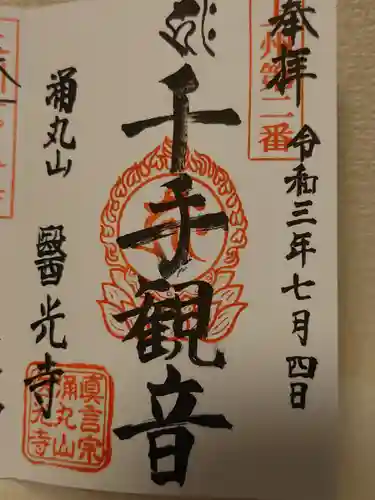 奉拝
州第二番
令和三年七月四日
千手観音
涌丸山
醫光寺
真言宗
涌丸山
醫光寺